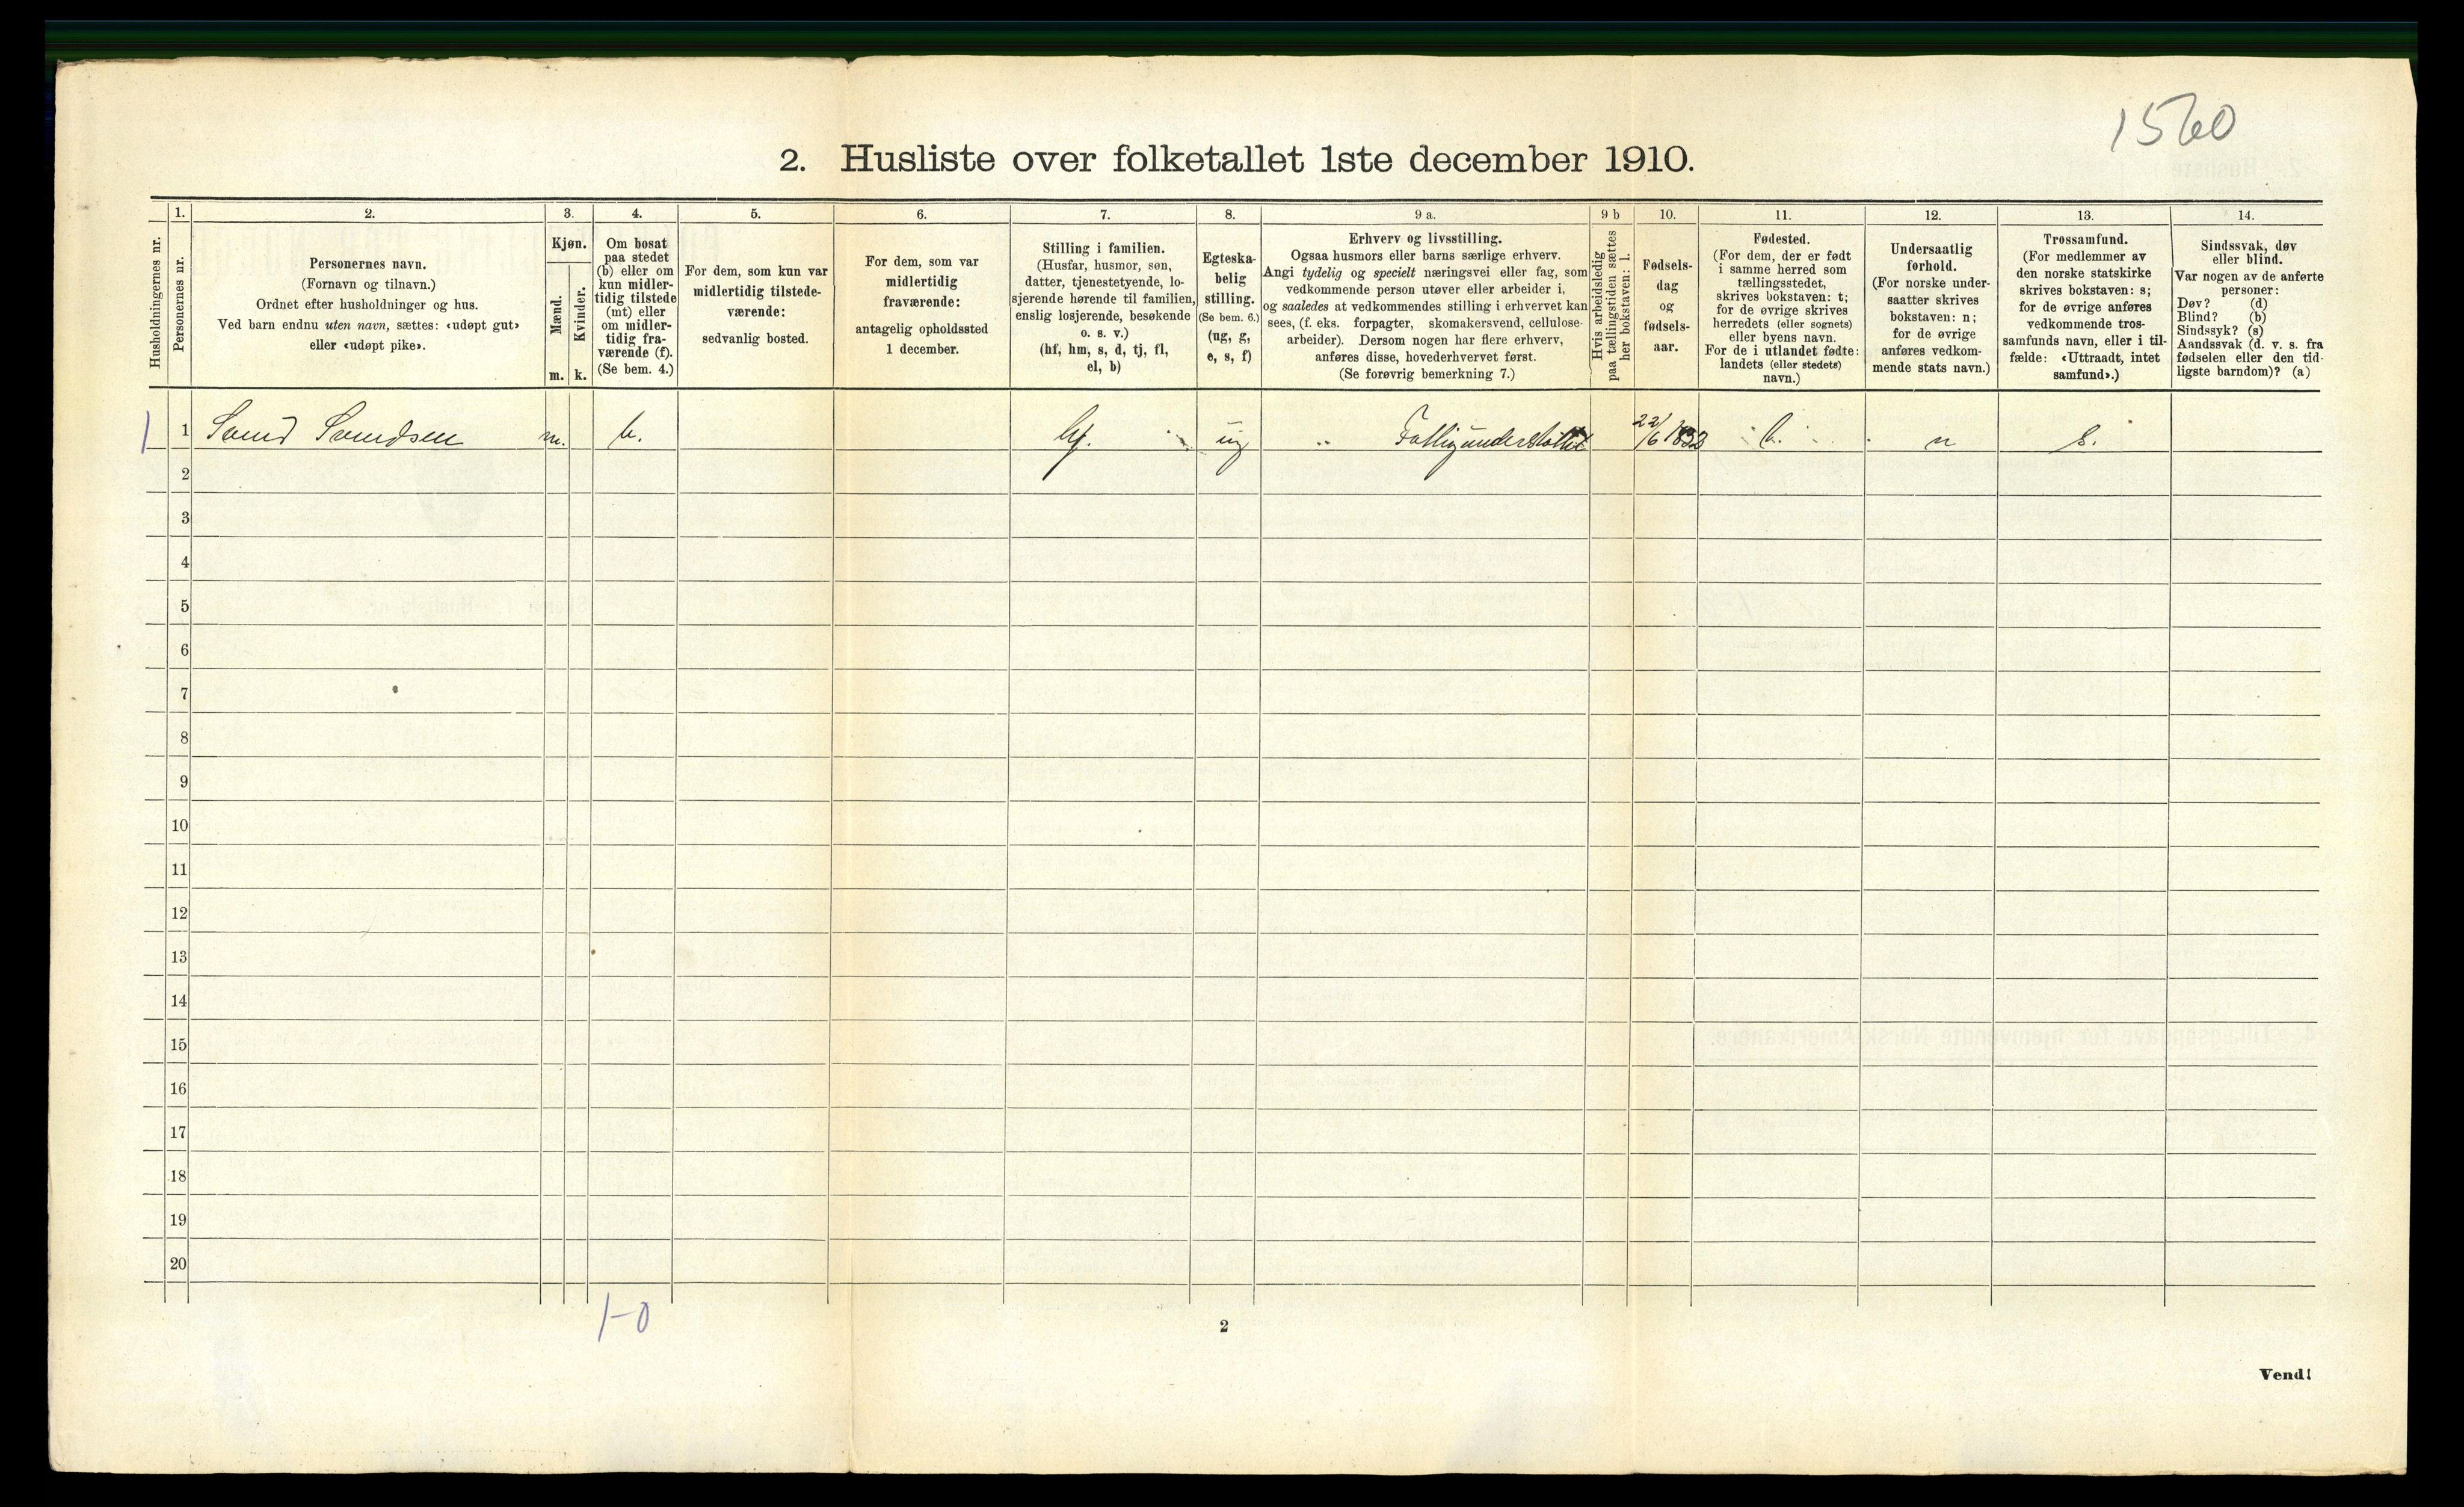 1560
2. Husliste over folketallet 1ste december 1910.
Husholdningernes nr.
1.
Personernes nr.
2.
Personernes navn.
(Fornavn og tilnavn.)
Ordnet efter husholdninger og hus.
Ved barn endnu uten navn, sættes: «udøpt gut»
eller «udøpt pike».
3.
Kjøn.
Mænd.
Kvinder.
m. k.
4.
Om bosat
paa stedet
(b) eller om
kun midler-
tidig tilstede
(mt) eller
om midler-
tidig fra-
værende (f).
(Se bem. 4.)
5.
For dem, som kun var
midlertidig tilstede-
værende:
sedvanlig bosted.
6.
For dem, som var
midlertidig
fraværende:
antagelig opholdssted
1 december.
7.
Stilling i familien.
(Husfar, husmor, søn,
datter, tjenestetyende, lo-
sjerende hørende til familien,
enslig losjerende, besøkende
o. s. v.)
(hf, hm, s, d, tj, fl,
el, b)
8.
Egteska-
belig
stilling.
(Se bem. 6.)
(ug, g,
e, s, f)
9 a.
Erhverv og livsstilling.
Ogsaa husmors eller barns særlige erhverv.
Angi tydelig og specielt næringsvei eller fag, som
vedkommende person utøver eller arbeider i,
og saaledes at vedkommendes stilling i erhvervet kan
sees, (f. eks. forpagter, skomakersvend, cellulose-
arbeider). Dersom nogen har flere erhverv,
anføres disse, hovederhvervet først.
(Se forøvrig bemerkning 7.)
9 b
Hvis arbeidsledig
paa tællingstiden sættes
her bokstaven: l.
10.
Fødsels-
dag
og
fødsels-
aar.
11.
Fødested.
(For dem, der er født
i samme herred som
tællingsstedet,
skrives bokstaven: t;
for de øvrige skrives
herredets (eller sognets)
eller byens navn.
For de i utlandet fødte:
landets (eller stedets)
navn.)
12.
Undersaatlig
forhold.
(For norske under-
saatter skrives
bokstaven: n;
for de øvrige
anføres vedkom-
mende stats navn.)
13.
Trossamfund.
(For medlemmer av
den norske statskirke
skrives bokstaven: s;
for de øvrige anføres
vedkommende tros-
samfunds navn, eller i til-
fælde: «Uttraadt, intet
samfund».)
14.
Sindssvak, døv
eller blind.
Var nogen av de anførte
personer:
Døv? (d)
Blind? (b)
Sindssyk? (s)
Aandssvak (d. v. s. fra
fødselen eller den tid-
ligste barndom)? (a)
1 1 Svend Svendsen m. b. hf. ug Fattigunderstøttet 22/6 1832 n s.
2
3
4
5
6
7
8
9
10
11
12
13
14
15
16
17
18
19
20
1-0
2
Vend!